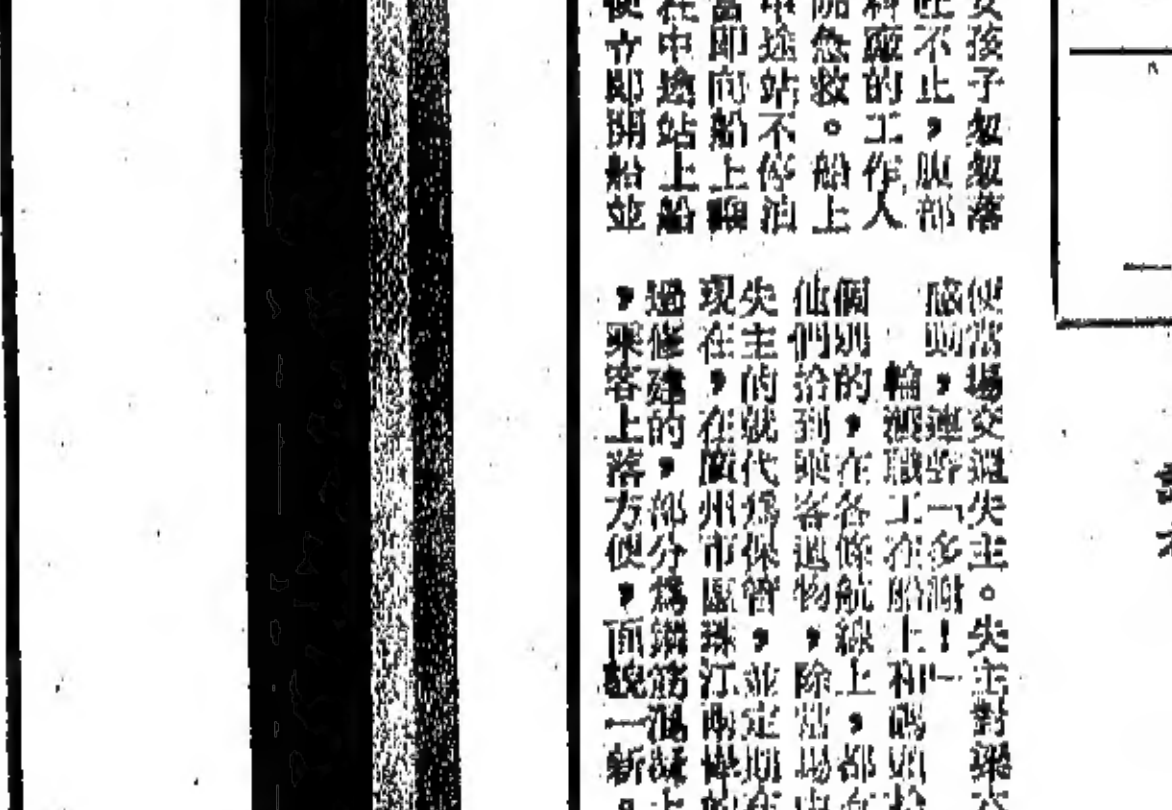 孩子
不止，腹部
廠的工作人
急救。船上
途站不停泊
即向船上
中途站上船
立即開船並
便當場交還失主。失主對梁
感動，連聲「多謝！」
輪渡職工在船上和碼頭
個別的，在各條航線上，都
他們拾到乘客遺物，除當場
失主的就代爲保管，並定期在
現在，在廣州市區珠江兩岸
過修建的，部分爲鋼筋混凝上
，乘客上落方便，面貌一新